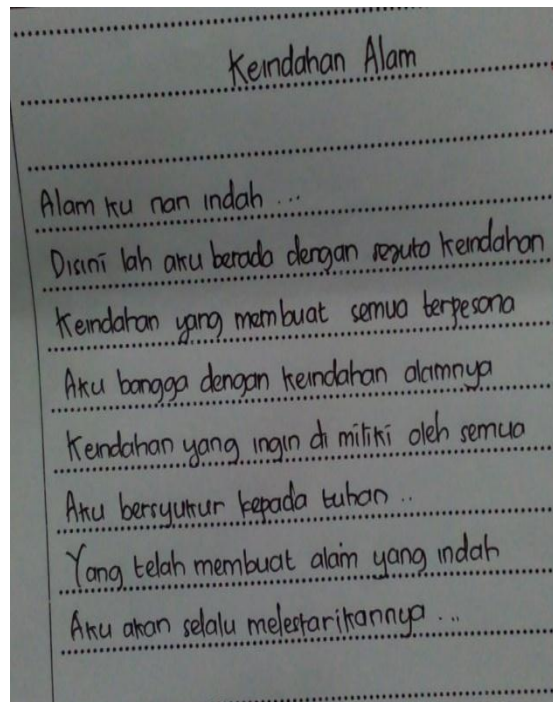 Keindahan Alam
Alam ku nan indah ...
Disini lah aku berada dengan sejuta keindahan
Keindahan yang membuat semua terpesona
Aku bangga dengan keindahan alamnya
Keindahan yang ingin di miliki oleh semua
Aku bersyukur kepada tuhan ..
Yang telah membuat alam yang indah
Aku akan selalu melestarikannya ...